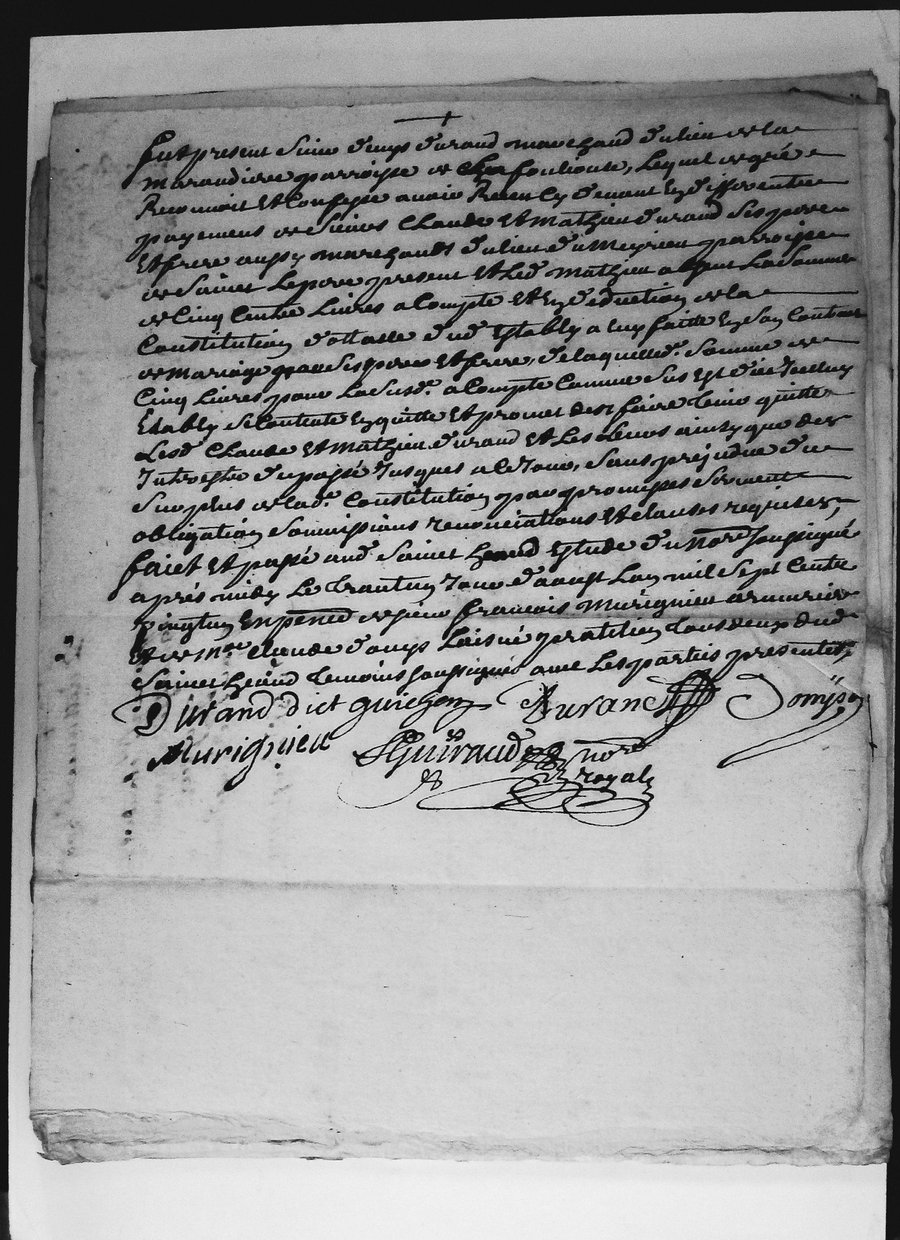 fut present sieur durand marchand du lieu de la
maraudiere parroisse de la fouliouse, Lequel de gré
Reconnoit Et Confesse avoir Receu Cy devant En differentes
payements de sieurs Claude Et Mathieu durand ses pere
Et frere aussy marchands du lieu du Meyrieu parroisse
de Sainct present Et Led. mathieu absent La Somme
de Cinq Cents Livres a Compte Et En deduction de la
Constitution dottalle dud. Establÿ a luy faitte En son Contrat
de mariage par ses pere Et frere, de laquelled. Somme de
Cinq Livres pour La susd. a Compte Comme sus Est dit Led.
Establÿ se Contente En quitte Et promet den faire tenir quitte
Lesd. Claude Et Mathieu durand Et Les Leurs ainsy que des
Interests du passé Jusques a Ce Jour, Sans prejudice du
Surplus de lad. Constitution par promesses serment
obligation Soumissions renonciations Et clauses requises,
faict Et passé aud. Sainct Estude du No.re soussigné
aprés midy Le trantun Jour d'aoust Lan mil Sept Cents
vingtun En pnce de sieur françois Murignieu armurier
Et de m.re Claude Laisné praticien tous deux dud.
Sainct temoins soussignés avec Les parties presentes,
Durand dict guichon Durand
Murignieu Guiraud no.re
royal